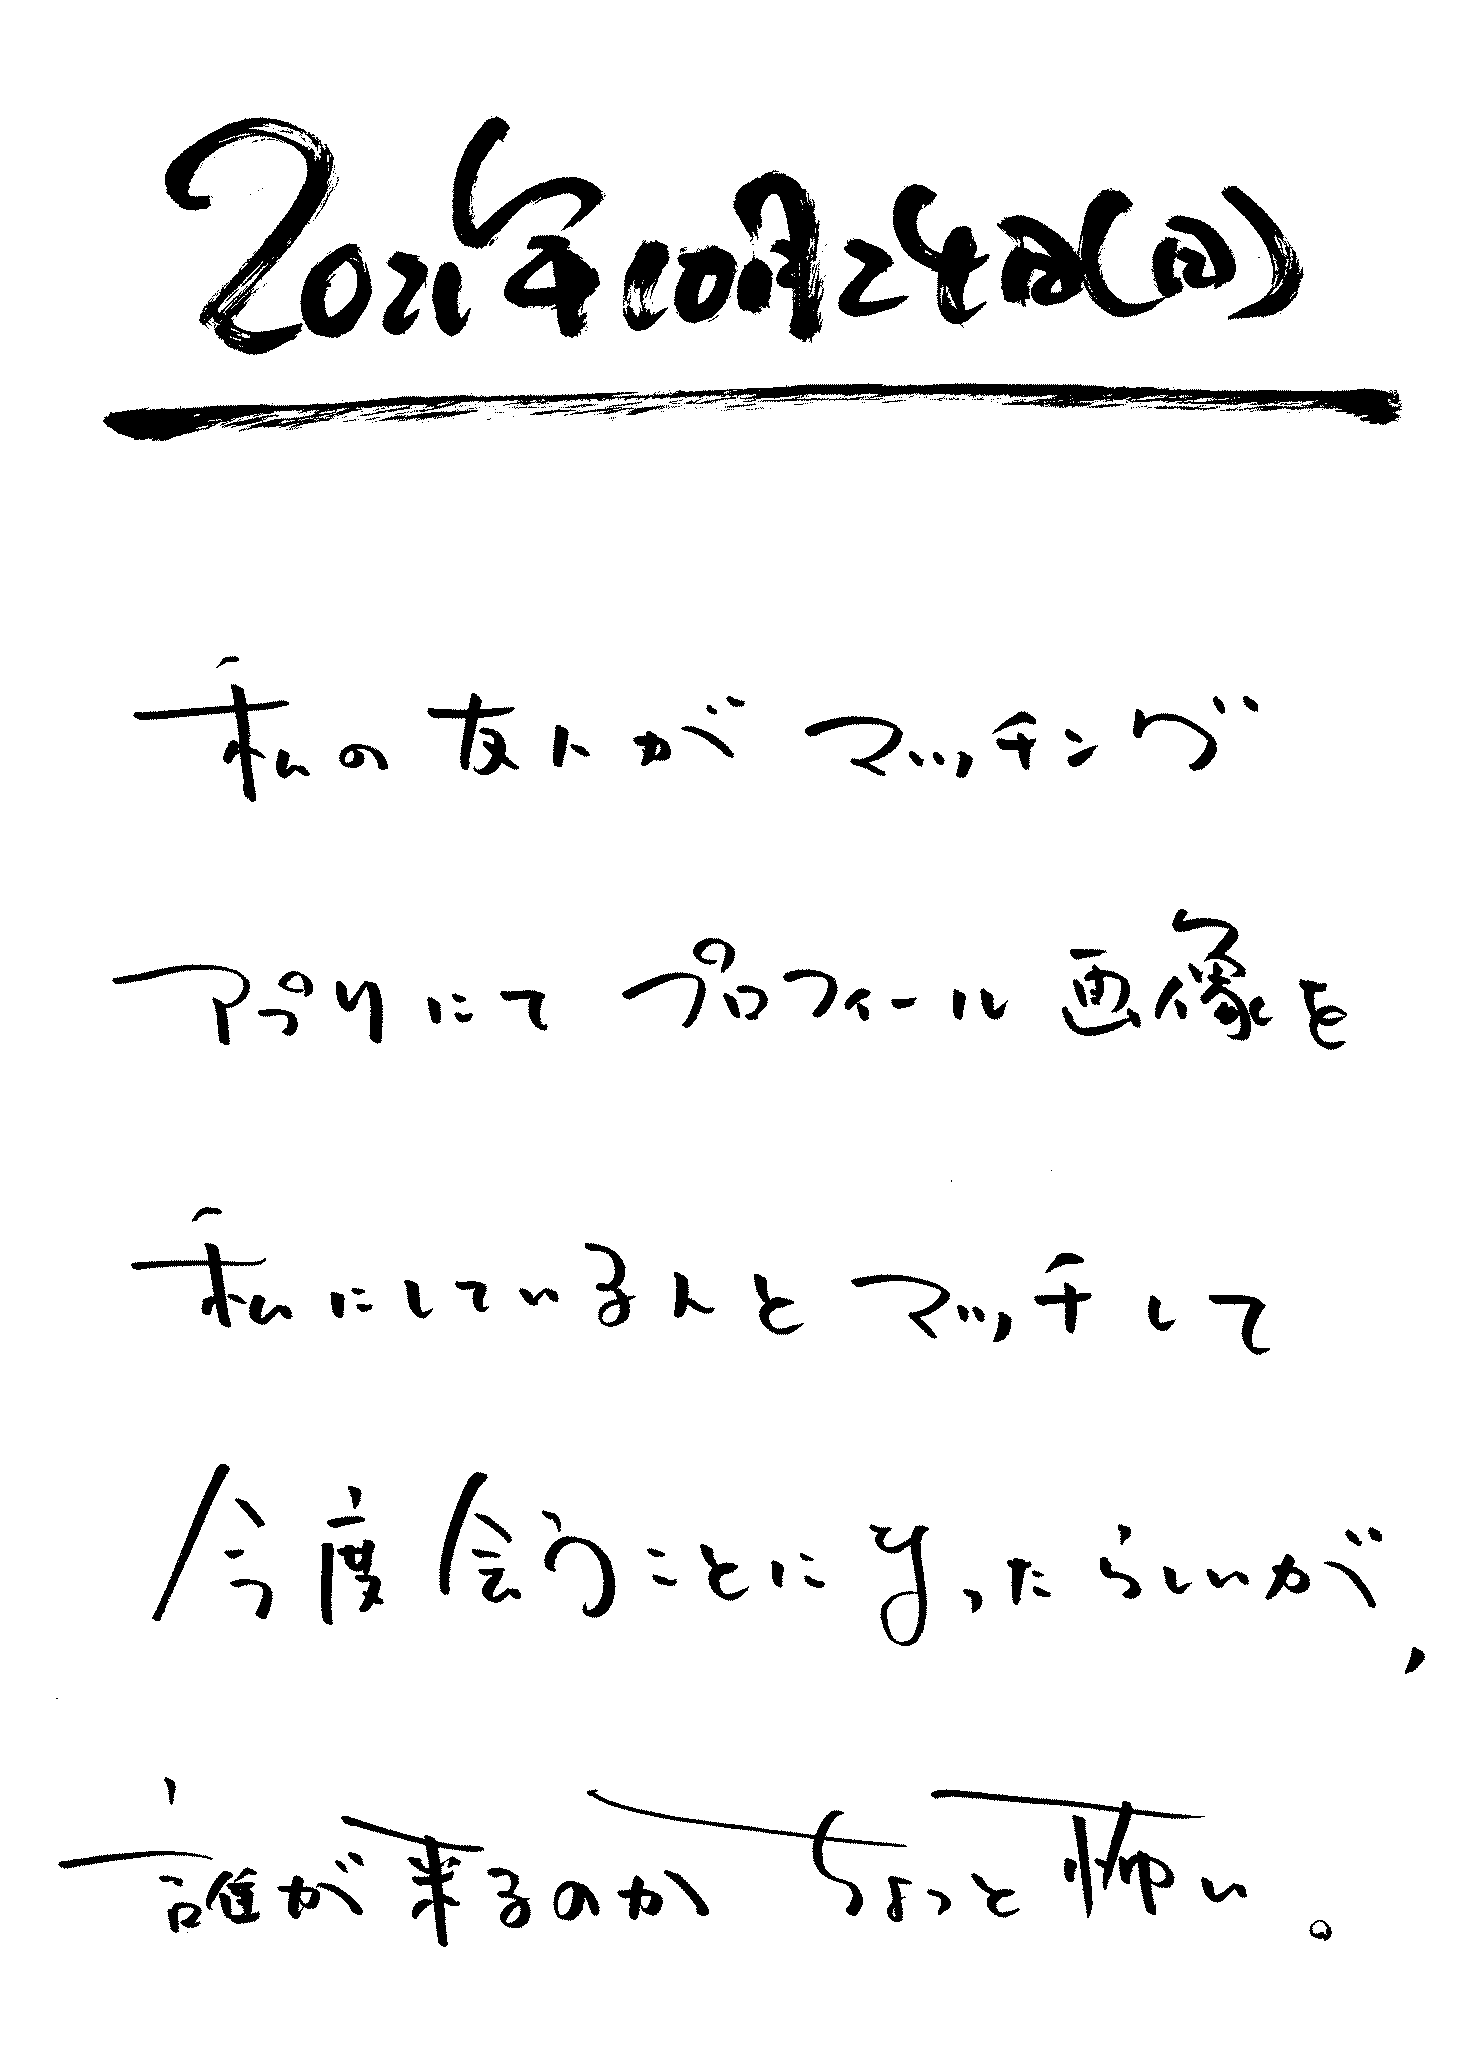 2021年10月24日(日)
私の友人がマッチング
アプリにてプロフィール画像を
私にしている人とマッチして
今度会うことになったらしいが、
誰が来るのかちょっと怖い。